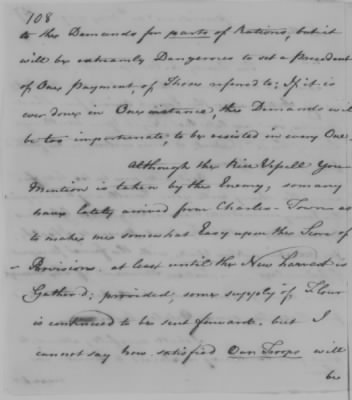 108
to the Demands for parts of Rations, but it
will be extreamly Dangerous to set a Precedent
of One Payment, of those refered to; If it is
ever done in One instance, the Demands will
be too importunate, to be resisted in every One.
Although the Rice Vessell You
Mention is taken by the Enemy, so many
have lately arived from Charles-Town as
to make me somewhat Easy upon the Score of
Provisions, at least until the New harvest is
Gather'd; provided, some supply of Flour
is continued to be sent forward. but I
cannot say how satisfied Our Troops will
be